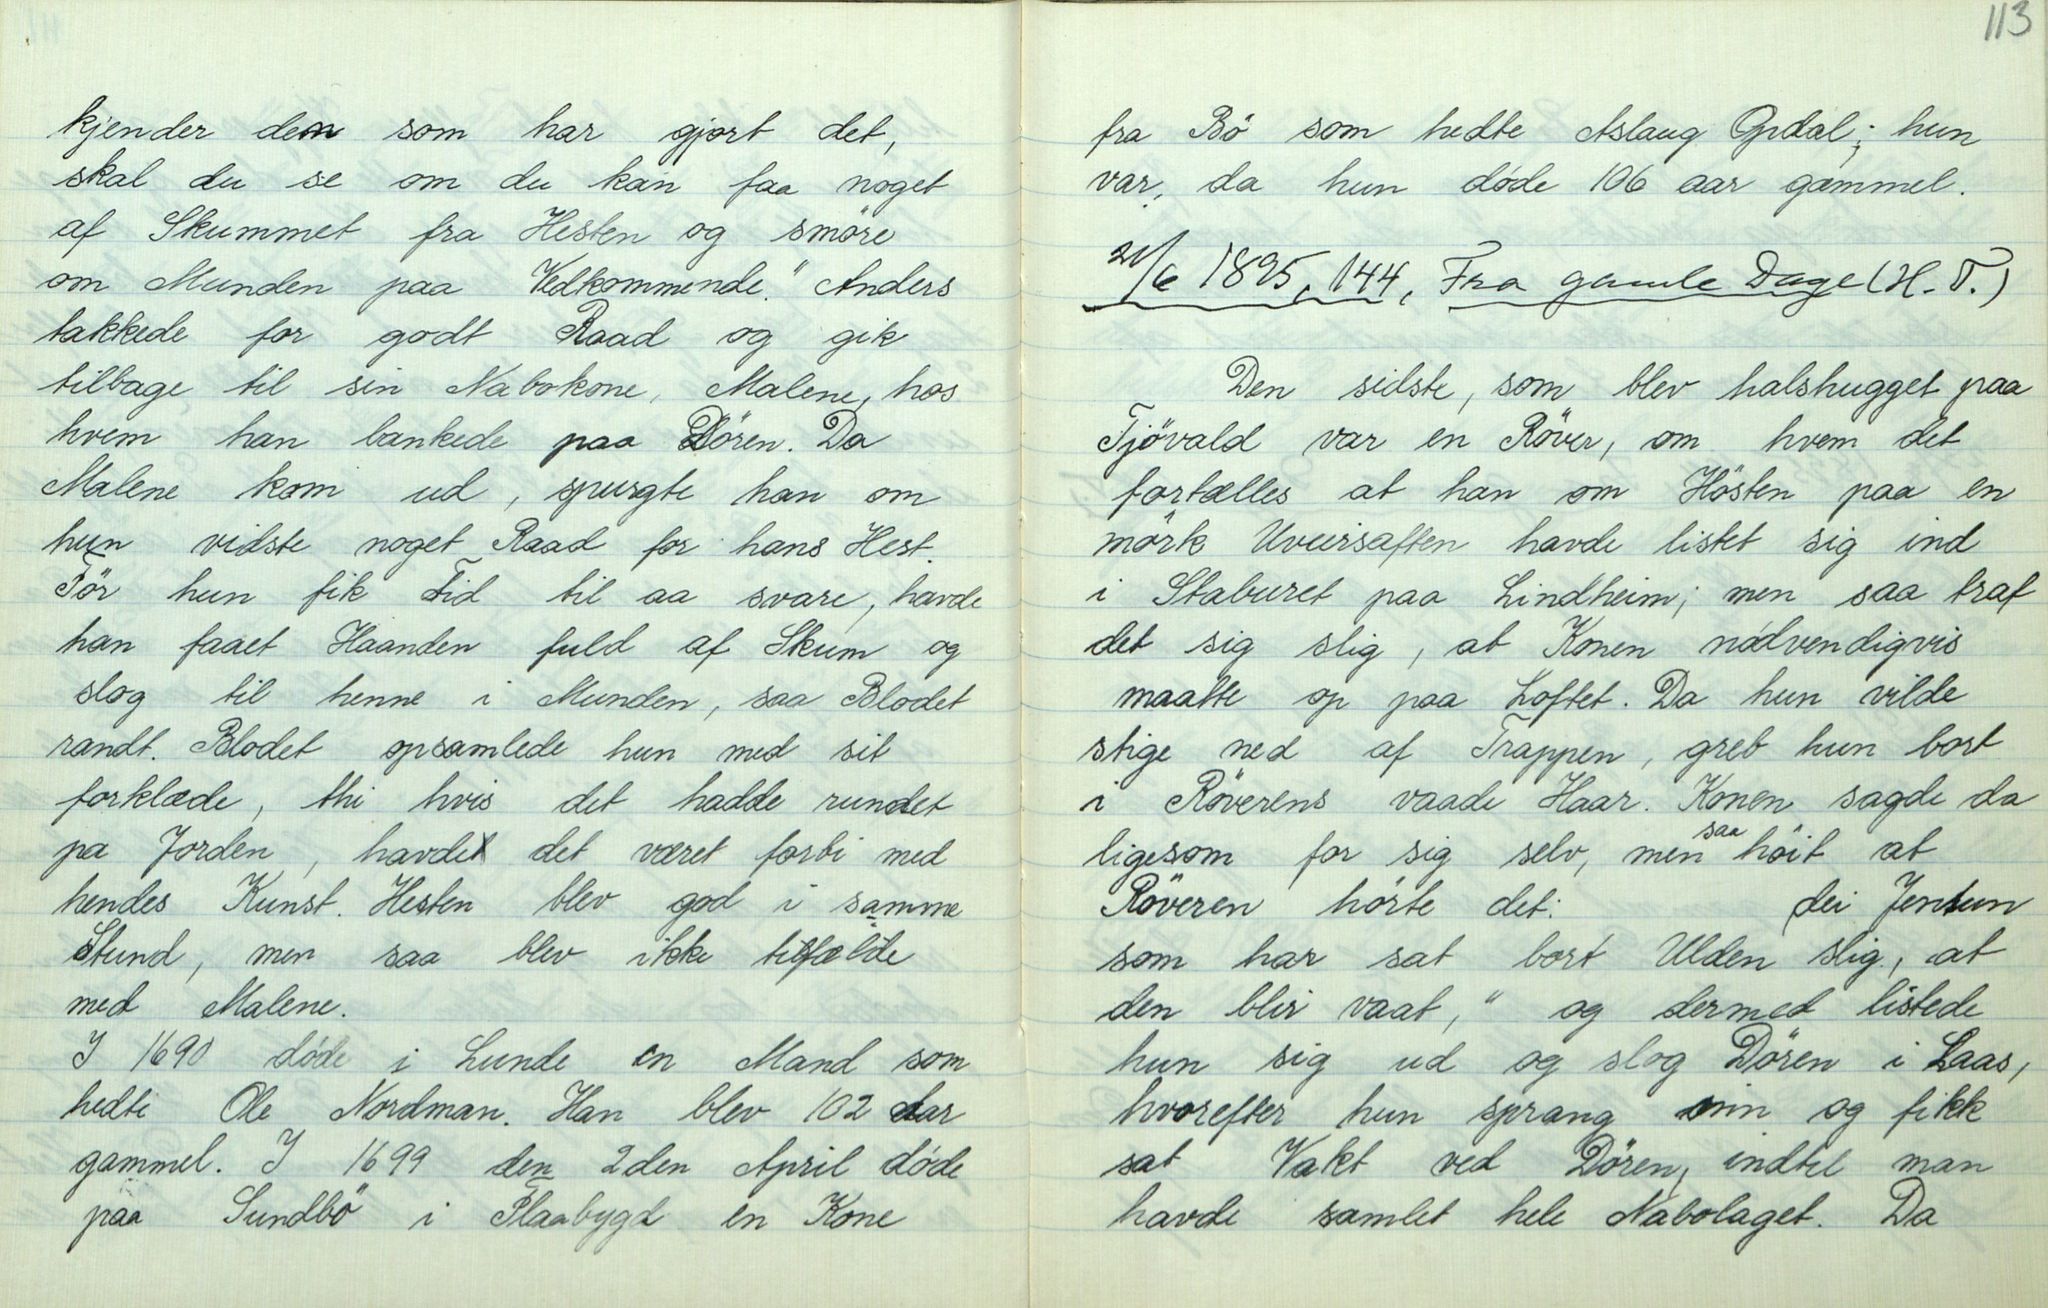 kjender den som har gjort det,
skal du se om du kan faa noget
af Skummet fra Hesten og smöre
om Munden paa Vedkommende." Anders
takkede for godt Raad og gik
tilbage til sin Nabokone, Malene, hos
hvem han bankede paa Dören. Da
Malene kom ud, spurgte han om
hun vidste noget Raad for hans Hest.
För hun fik Tid til aa svare, havde
han faaet Haanden fuld af Skum og
slog til henne i Munden, saa Blodet
randt. Blodet opsamlede hun med sit
forklæde, thi hvis det hadde rundet
pa Jorden, havde det været forbi med
hendes Kunst. Hesten blev god i samme
Stund, men saa blev ikke tilfælde
med Malene.
I 1690 döde i Lunde en Mand som
hedte Ole Nordman. Han blev 102 aar
gammel. I 1699 den 2den April döde
paa Sundbö i Flaabygd en Kone
113
fra Bö som hedte Aslaug Opdal; hun
var, da hun döde 106 aar gammel.
21/6 1895, 144, Fra gamle Dage (H. T.)
Den sidste, som blev halshugget paa
Tjövald var en Röver, om hvem det
fortælles at han om Hösten paa en
mörk Uveirsaften havde listet sig ind
i Staburet paa Lindheim; men saa traf
det sig slig, at Konen nödvendigvis
maatte op paa Loftet. Da hun vilde
stige ned af Trappen, greb hun bort
i Röverens vaade Haar. Konen sagde da
ligesom for sig selv, men saa höit at
Röveren hörte det: dei Jentun
som har sat bort Ulden slig, at
den blir vaat," og dermed listede
hun sig ud og slog Dören i Laas,
hvorefter hun sprang inn og fikk
sat Vakt ved Dören, indtil man
havde samlet hele Nabolaget. Da